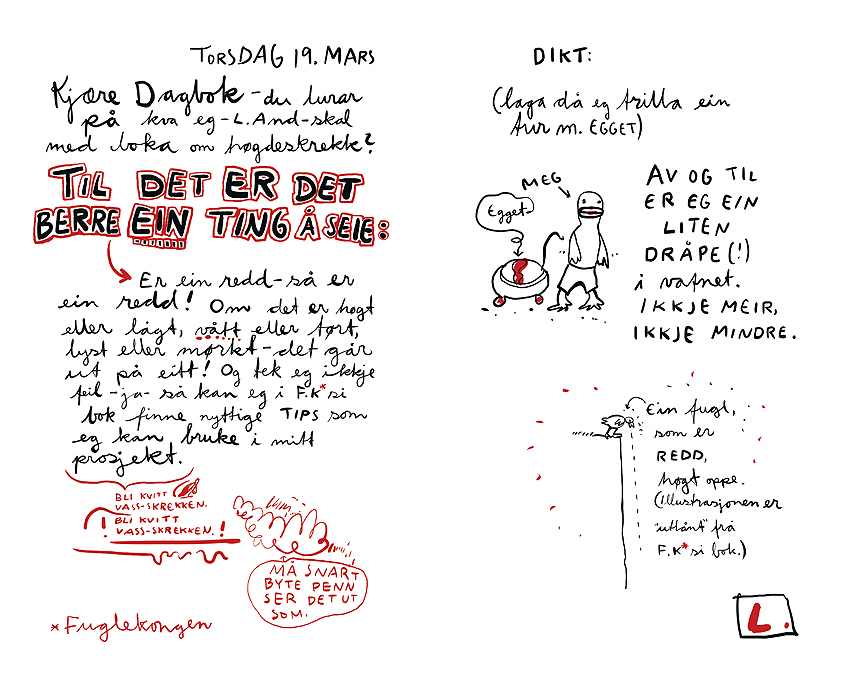 TORSDAG 19. MARS
Kjære Dagbok - du lurar
på kva eg - L. And - skal
med boka om høgdeskrekk?
TIL DET ER DET
BERRE EIN TING Å SEIE:
Er ein redd - så er
ein redd! Om det er høgt
eller lågt, vått eller tørt,
lyst eller mørkt - det går
ut på eitt! Og tek eg ikkje
feil - ja - så kan eg i F.K* si
bok finne nyttige TIPS som
eg kan bruke i mitt
prosjekt.
BLI KVITT
VASS-SKREKKEN.
! BLI KVITT
VASS-SKREKKEN. !
MÅ SNART
BYTE PENN
SER DET UT
SOM.
*Fuglekongen
DIKT:
(laga då eg trilla ein
tur m. EGGET)
MEG
Egget
AV OG TIL
ER EG EIN
LITEN
DRÅPE (!)
i vatnet.
IKKJE MEIR,
IKKJE MINDRE.
Ein fugl,
som er
REDD,
høgt oppe.
(Illustrasjonen er
"utlånt" frå
F.K* si bok.)
L.